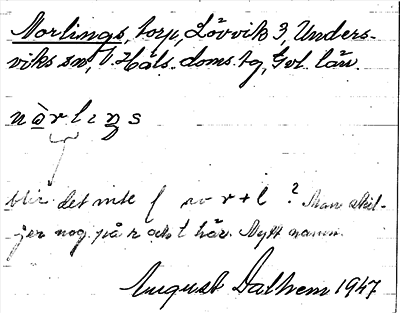 Norlings, torp, Lövvik 3, Unders-
viks sn, V. Häls. doms.ty, Gvl. län.
nàrlıŋs
blir det inte ſ av r+l ? Man skil-
jer nog på r och l här. Nytt namn.
August Dalhem 1947